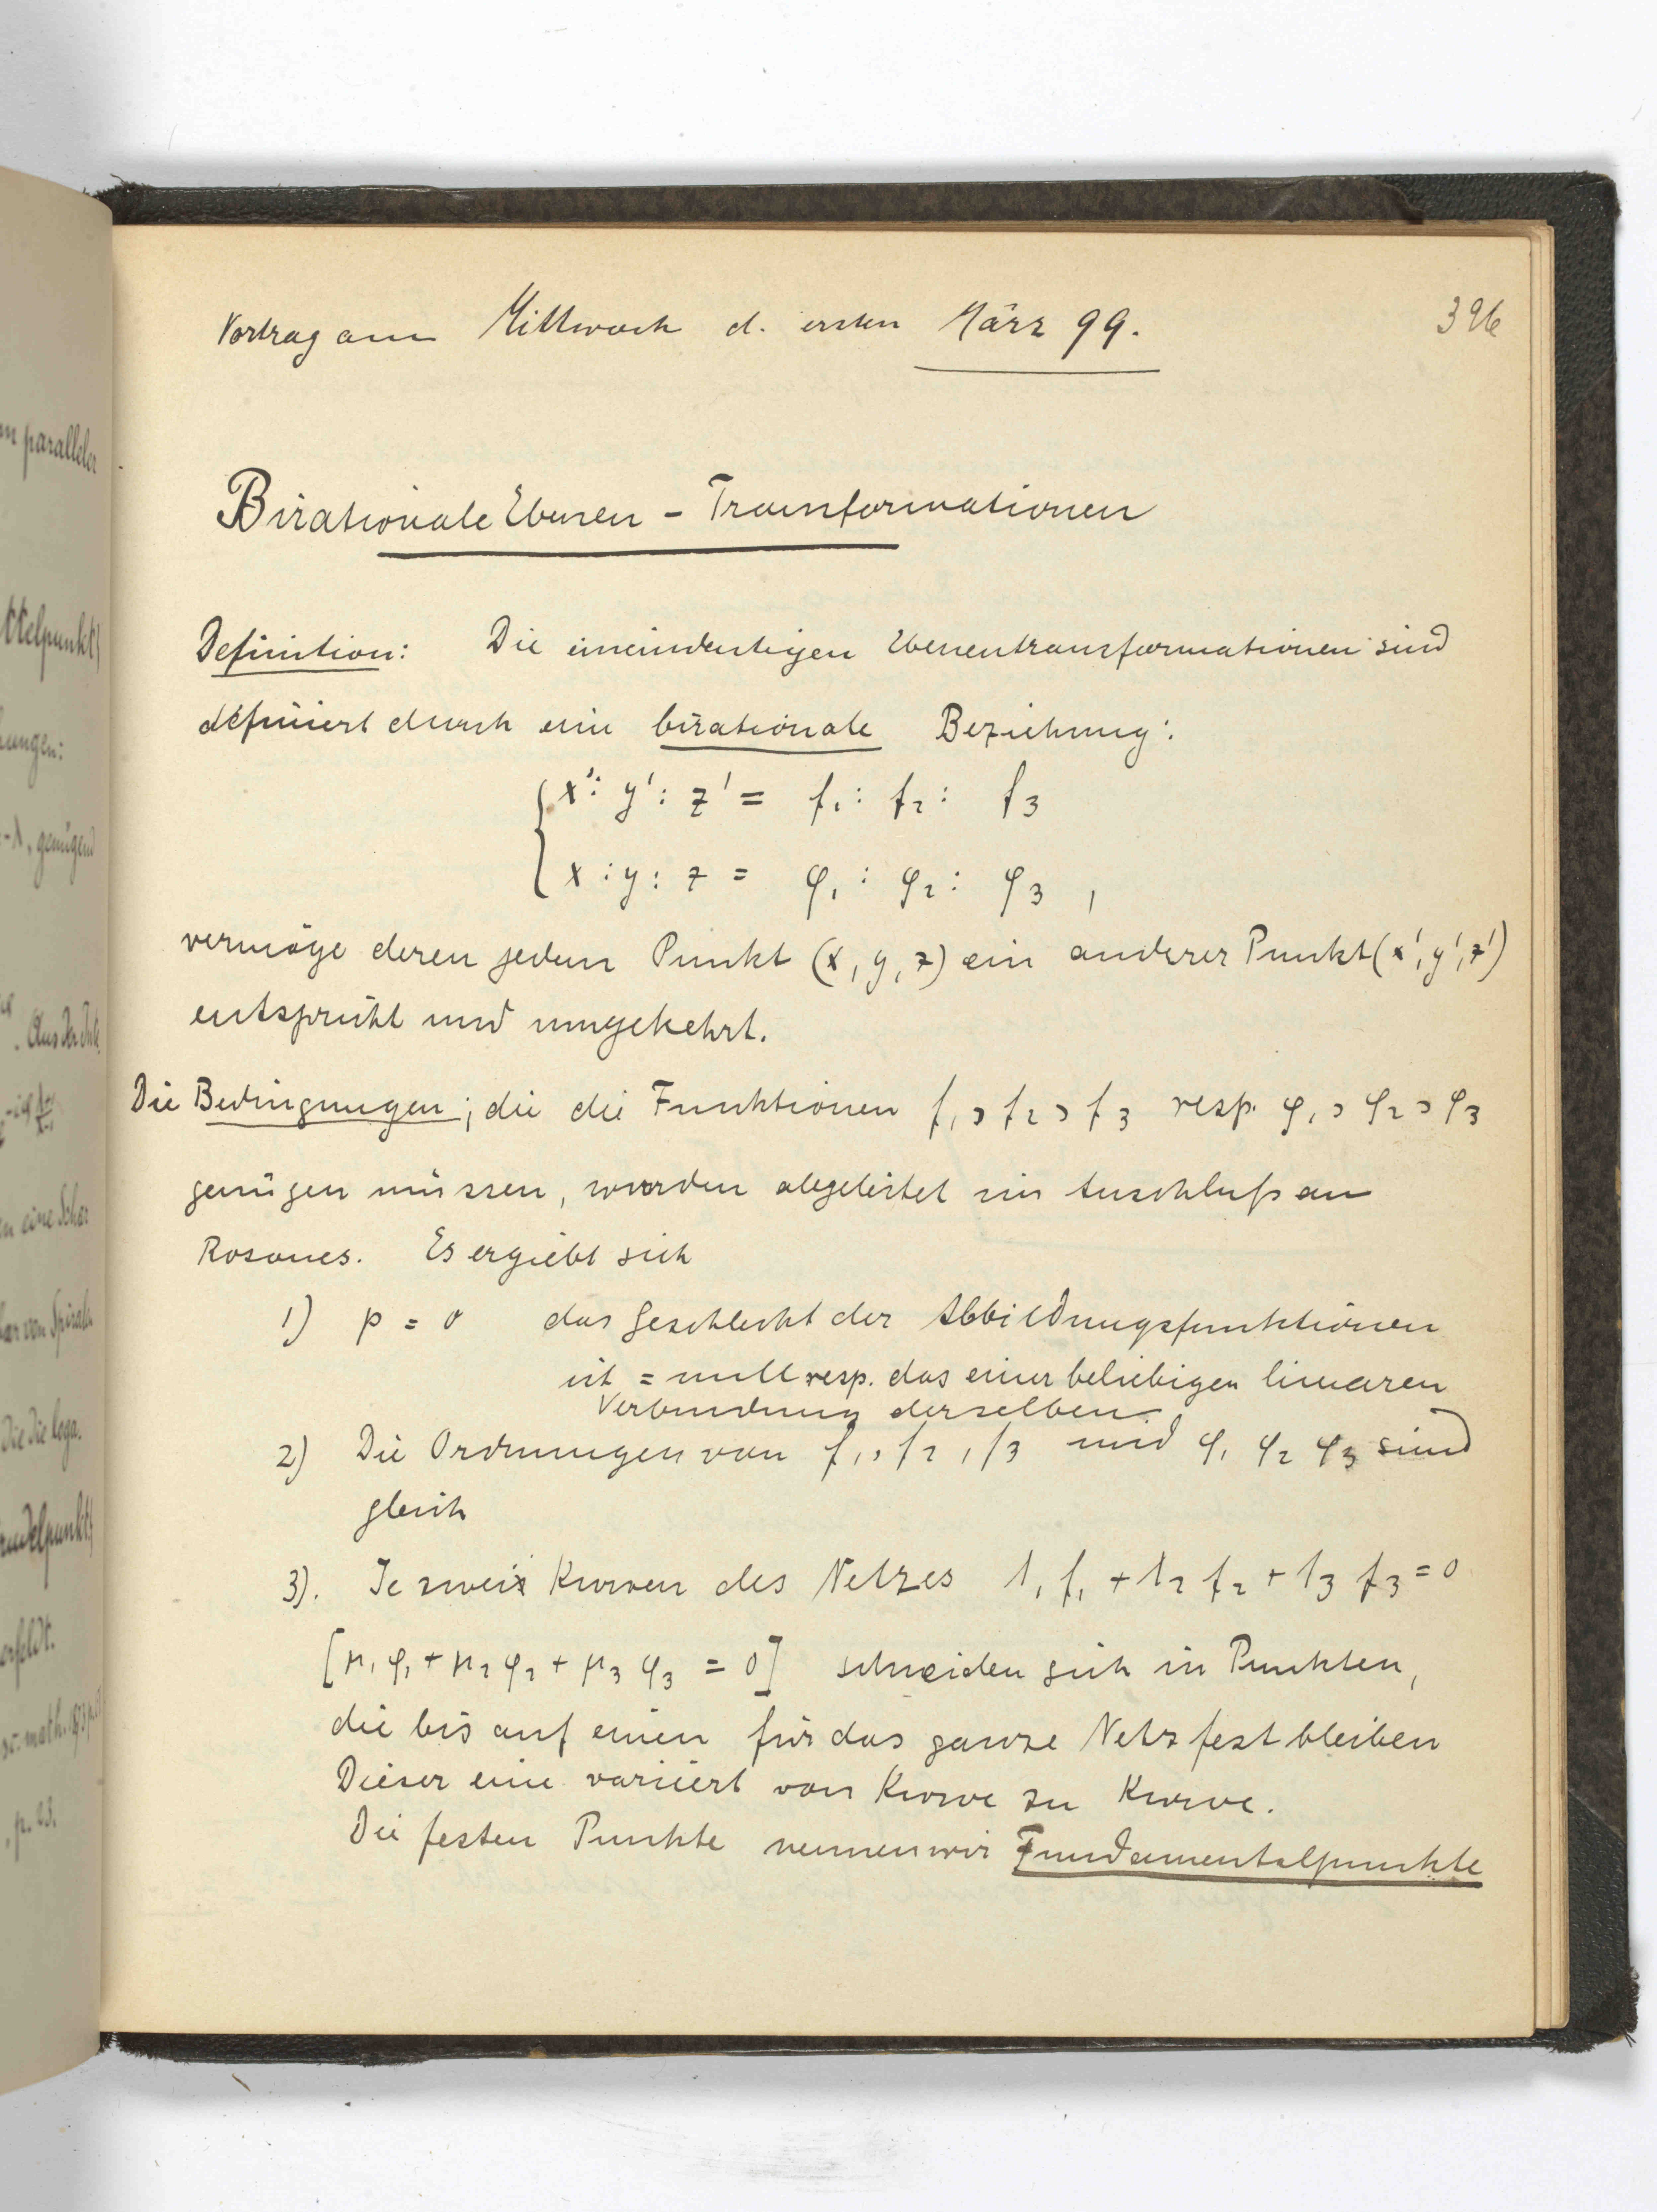 Vortrag am Mittwoch d. ersten März 99.
326
Birationale Ebenen - Transformationen
Definition: Die eineindeutigen Ebenentransformationen sind
definiert durch eine birationale Beziehung:
x' : y' : z' = f₁ : f₂ : f₃
x : y : z = φ₁ : φ₂ : φ₃ ,
vermöge deren jedem Punkt (x, y, z) ein anderer Punkt (x', y', z')
entspricht und umgekehrt.
Die Bedingungen, die die Funktionen f₁, f₂, f₃ resp. φ₁, φ₂, φ₃
genügen müssen, werden abgeleitet im Anschluß an
Rosanes. Es ergiebt sich
1) p = 0 das Geschlecht der Abbildungsfunktionen
ist = null resp. das einer beliebigen linearen
Verbindung derselben.
2) Die Ordnungen von f₁, f₂, f₃ und φ₁ φ₂ φ₃ sind
gleich
3). Je zwei Kurven des Netzes λ₁ f₁ + λ₂ f₂ + λ₃ f₃ = 0
[μ₁ φ₁ + μ₂ φ₂ + μ₃ φ₃ = 0] schneiden sich in Punkten,
die bis auf einen für das ganze Netz fest bleiben
Dieser eine variiert von Kurve zu Kurve.
Die festen Punkte nennen wir Fundamentalpunkte